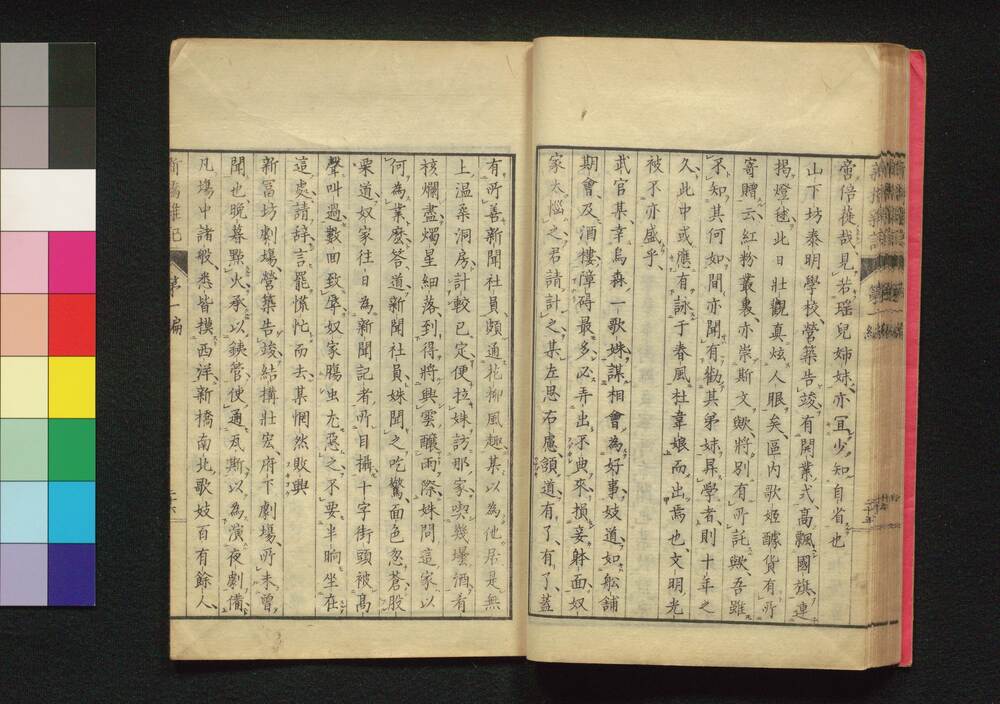 啻倍蓰哉、見若瑶兒姉妹、亦冝少知自省也
山下坊泰明學校營築告竣、有開業式、高飄國旗、連
揭燈毬、此日壯觀真炫人眼矣、區內歌姬醵貨有所
寄贈云、紅粉叢裏、亦崇斯文歟、將別有所託歟、吾雖
不知其何如、間亦聞有勸其弟妹昇學者、則十年之
久、此中或應有詠于春風杜韋娘而出焉也、文明光
被不亦盛乎
武官某、幸烏森一歌妹、謀相會為好事、妓道、如舩舖
期會及酒樓、障碍最多、必弄出不典來、損妾躰面、奴
家太惱之、君請計之、某左思右慮、頷道、有了、有了、蓋
有所善新聞社員、頗通花柳風趣、某以為他居是無
上溫柔洞房、計較已定、便拉妹訪那家、喫幾壜酒、肴
核爛盡、燭星細落、到得將興雲釀雨、際妹問、這家以
何為業麼、答道、新聞社員、妹聞之吃驚、面色忽蒼、股
栗道、奴家往日為新聞記者所目攝、十字街頭被高
聲叫過數回、致辱奴家、膓虫尤惡之、不要半晌坐在
這處、請辞、言罷慌忙而去、某惘然敗興
新冨坊劇塲、營築告竣、結構壯宏、府下劇塲所未曾
聞也、晩暮點火、承以鋏管、使通瓦斯、以為演夜劇備、
凡塲中諸般、悉皆摸西洋、新橋南北歌妓百有餘人、
新橋雜記
第一編